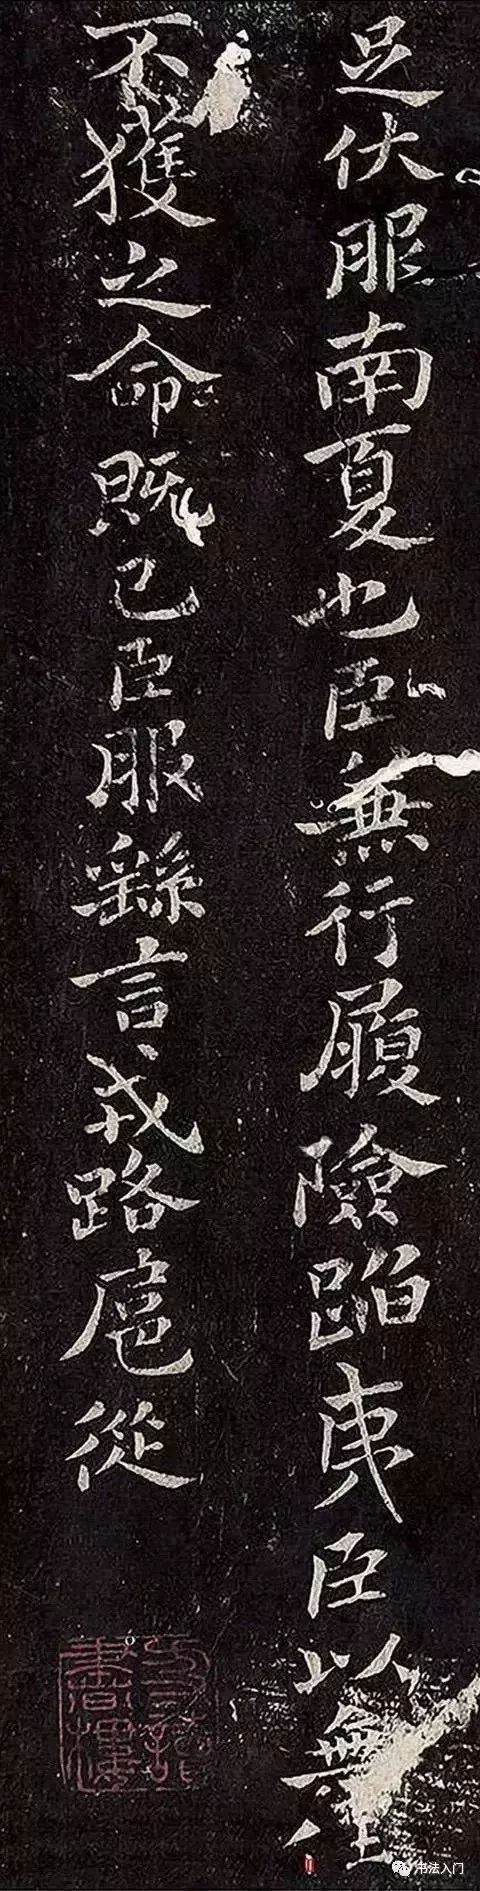 足伏服南夏也臣無行履險蹈夷臣以無任
不獲之命既已臣服繇言戎路扈從
书法入门